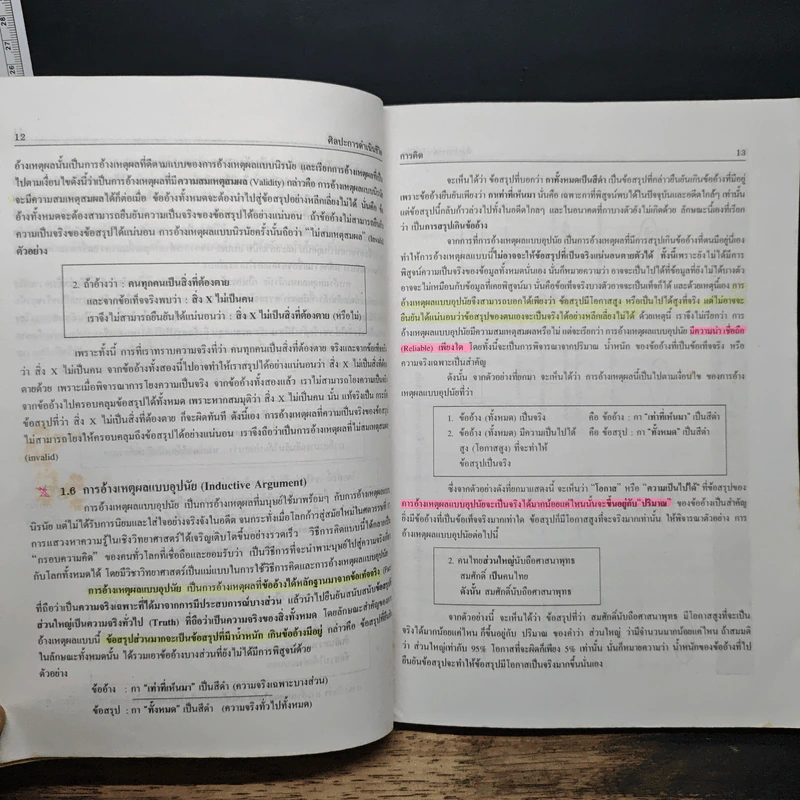 28
27
26
12
ศิลปะการดำเนินชีวิต
อ้างเหตุผลนั้นเป็นการอ้างเหตุผลที่ดีตามแบบของการอ้างเหตุผลแบบนิรนัย และเรียกการอ้างเหตุผลที่เป็น
ไปตามเงื่อนไขดังนี้ว่าเป็นการอ้างเหตุผลที่มีความสมเหตุสมผล (Validity) กล่าวคือ การอ้างเหตุผลแบบนิรนัย
จะมีความสมเหตุสมผลได้ก็ต่อเมื่อ ข้ออ้างทั้งหมดจะต้องนำไปสู่ข้อสรุปอย่างหลีกเลี่ยงไม่ได้ นั่นคือ ข้อ
อ้างทั้งหมดจะต้องสามารถยืนยันความเป็นจริงของข้อสรุปได้อย่างแน่นอน ถ้าข้ออ้างไม่สามารถยืนยัน
ความเป็นจริงของข้อสรุปได้แน่นอน การอ้างเหตุผลแบบนิรนัยครั้งนั้นถือว่า "ไม่สมเหตุสมผล" (Invalid)
ตัวอย่าง
2. ถ้าอ้างว่า : คนทุกคนเป็นสิ่งที่ต้องตาย
และจากข้อเท็จจริงพบว่า : สิ่ง X ไม่เป็นคน
เราจึงไม่สามารถยืนยันได้แน่นอนว่า : สิ่ง X ไม่เป็นสิ่งที่ต้องตาย (หรือไม่)
เพราะทั้งนี้ การที่เราทราบความจริงที่ว่า คนทุกคนเป็นสิ่งที่ต้องตาย จริงและจากข้อเท็จจริงที่พบ
ว่า สิ่ง X ไม่เป็นคน จากข้ออ้างทั้งสองนี้ไปอาจทำให้เราสรุปได้อย่างแน่นอนว่า สิ่ง X ไม่เป็นสิ่งที่ต้อง
ตายด้วย เพราะเมื่อพิจารณาการโยงความเป็นจริง จากข้ออ้างทั้งสองแล้ว เราไม่สามารถโยงความเป็นจริง
จากข้ออ้างไปครอบคลุมข้อสรุปได้ทั้งหมด เพราะหากสมมุติว่า สิ่ง X ไม่เป็นคน นั้น แท้จริงเป็น
ข้อสรุปที่ว่า สิ่ง X ไม่เป็นสิ่งที่ต้องตาย ก็จะผิดทันที ดังนี้เอง การอ้างเหตุผลที่ความเป็นจริงของข้ออ้าง
ไม่สามารถโยงให้ครอบคลุมถึงข้อสรุปได้อย่างแน่นอน เราจึงถือว่าเป็นการอ้างเหตุผลที่ไม่สมเหตุสมผล
(invalid)
1.6 การอ้างเหตุผลแบบอุปนัย (Inductive Argument)
การอ้างเหตุผลแบบอุปนัย เป็นการอ้างเหตุผลที่มนุษย์ใช้มาพร้อมๆ กับการอ้างเหตุผลแบบ
นิรนัย แต่ไม่ได้รับการนิยมและใส่ใจอย่างจริงจังในอดีต จนกระทั่งเมื่อโลกก้าวสู่สมัยใหม่ในศตวรรษที่
การแสวงหาความรู้ในเชิงวิทยาศาสตร์ได้เจริญเติบโตขึ้นอย่างรวดเร็ว วิธีการคิดแบบนี้ได้กลายเป็น
"กรอบความคิด" ของคนทั่วโลกที่เชื่อถือและยอมรับว่า เป็นวิธีการที่จะนำพามนุษย์ไปสู่ความจริงเกี่ยว
กับโลกทั้งหมดได้ โดยมีวิชาวิทยาศาสตร์เป็นแม่แบบในการใช้วิธีการคิดและการอ้างเหตุผลแบบอุปนัย
การอ้างเหตุผลแบบอุปนัย เป็นการอ้างเหตุผลที่ข้ออ้างได้หลักฐานมาจากข้อเท็จจริง
ที่ถือว่าเป็นความจริงเฉพาะที่ได้มาจากการมีประสบการณ์บางส่วน แล้วนำไปยืนยันสนับสนุนข้อสรุปที่
ส่วนใหญ่เป็นความจริงทั่วไป (Truth) ที่ถือว่าเป็นความจริงของสิ่งทั้งหมด โดยลักษณะสำคัญของการ
อ้างเหตุผลแบบนี้ ข้อสรุปส่วนมากจะเป็นข้อสรุปที่มีน้ำหนัก เกินข้ออ้างมีอยู่ กล่าวคือ ข้อสรุปที่ยืนยัน
ในลักษณะทั้งหมดนั้น ได้รวมเอาข้ออ้างบางส่วนที่ยังไม่ได้มีการพิสูจน์ด้วย
ตัวอย่าง
ข้ออ้าง : กา "เท่าที่เห็นมา" เป็นสีดำ (ความจริงเฉพาะบางส่วน)
ข้อสรุป : กา "ทั้งหมด" เป็นสีดำ (ความจริงทั่วไปทั้งหมด)
การคิด
13
จะเห็นได้ว่า ข้อสรุปที่บอกว่า กาทั้งหมดเป็นสีดำ เป็นข้อสรุปที่กล่าวยืนยันเกินข้ออ้างที่มีอยู่
เพราะข้ออ้างยืนยันเพียงว่า กาเท่าที่เห็นมา นั่นคือ เฉพาะกาที่พิสูจน์พบได้ในปัจจุบันและอดีตใกล้ๆ เท่านั้น
แต่ข้อสรุปนี้กลับก้าวล่วงไปทั้งในอดีตไกลๆ และในอนาคตที่กาบางตัวยังไม่เกิดด้วย ลักษณะนี้เองที่เรียก
ว่า เป็นการสรุปเกินข้ออ้าง
จากการที่การอ้างเหตุผลแบบอุปนัย เป็นการอ้างเหตุผลที่มีการสรุปเกินข้ออ้างที่ตนมีอยู่นี่เอง
ทำให้การอ้างเหตุผลแบบนี้ไม่อาจจะให้ข้อสรุปที่เป็นจริงแน่นอนตายตัวได้ ทั้งนี้เพราะยังไม่ได้มีการ
พิสูจน์ความเป็นจริงของข้อมูลทั้งหมดนั่นเอง นั่นก็หมายความว่า อาจจะเป็นไปได้ที่ข้อมูลที่ยังไม่ได้บางตัว
อาจจะไม่เหมือนกับข้อมูลที่เคยพิสูจน์มา นั่นคือข้อเท็จจริงบางตัวอาจจะเป็นเท็จก็ได้ และด้วยเหตุนี้เอง การ
อ้างเหตุผลแบบอุปนัยจึงสามารถบอกได้เพียงว่า ข้อสรุปมีโอกาสสูง หรือเป็นไปได้สูงที่จริง แต่ไม่อาจจะ
ยืนยันได้แน่นอนว่าข้อสรุปของตนเองจะเป็นจริงได้อย่างหลีกเลี่ยงไม่ได้ ด้วยเหตุนี้ เราจึงไม่เรียกว่า การ
อ้างเหตุผลแบบอุปนัยมีความสมเหตุสมผลหรือไม่ แต่จะเรียกว่า การอ้างเหตุผลแบบอุปนัย มีความน่าเชื่อถือ
(Reliable) เพียงใด โดยทั้งนี้จะเป็นการพิจารณาจากปริมาณ น้ำหนัก ของข้ออ้างที่เป็นข้อเท็จจริง หรือ
ความจริงเฉพาะเป็นสำคัญ
ดังนั้น จากตัวอย่างที่ยกมา จะเห็นได้ว่า การอ้างเหตุผลนี้เป็นไปตามเงื่อนไข ของการอ้าง
เหตุผลแบบอุปนัยที่ว่า
1. ข้ออ้าง (ทั้งหมด) เป็นจริง คือ ข้ออ้าง : กา "เท่าที่เห็นมา" เป็นสีดำ
2. ข้ออ้าง (ทั้งหมด) มีความเป็นไปได้ คือ ข้อสรุป : กา "ทั้งหมด" เป็นสีดำ
สูง (โอกาสสูง) ที่จะทำให้
ข้อสรุปเป็นจริง
ซึ่งจากตัวอย่างดังที่ยกมาแสดงนี้ จะเห็นว่า "โอกาส" หรือ "ความเป็นไปได้" ที่ข้อสรุปของ
การอ้างเหตุผลแบบอุปนัยจะเป็นจริงได้มากน้อยแค่ไหนนั้นจะขึ้นอยู่กับ"ปริมาณ" ของข้ออ้างเป็นสำคัญ
ยิ่งมีข้ออ้างที่เป็นข้อเท็จจริงมากเท่าใด ข้อสรุปก็มีโอกาสสูงที่จะจริงมากเท่านั้น ให้พิจารณาตัวอย่าง การ
อ้างเหตุผลแบบอุปนัยต่อไปนี้
2. คนไทยส่วนใหญ่นับถือศาสนาพุทธ
สมศักดิ์ เป็นคนไทย
ดังนั้น สมศักดิ์นับถือศาสนาพุทธ
จากตัวอย่างนี้ จะเห็นได้ว่า ข้อสรุปที่ว่า สมศักดิ์นับถือศาสนาพุทธ มีโอกาสสูงที่จะเป็น
จริงได้มากน้อยแค่ไหน ก็ขึ้นอยู่กับ ปริมาณ ของคำว่า ส่วนใหญ่ ว่ามีจำนวนมากน้อยแค่ไหน ถ้าสมมติ
ว่า ส่วนใหญ่เท่ากับ 95% โอกาสที่จะผิดก็มีเพียง 5% เท่านั้น นั่นก็หมายความว่า น้ำหนักของข้ออ้างที่ไป
ยืนยันข้อสรุปจะทำให้ข้อสรุปมีโอกาสเป็นจริงมากขึ้นนั่นเอง